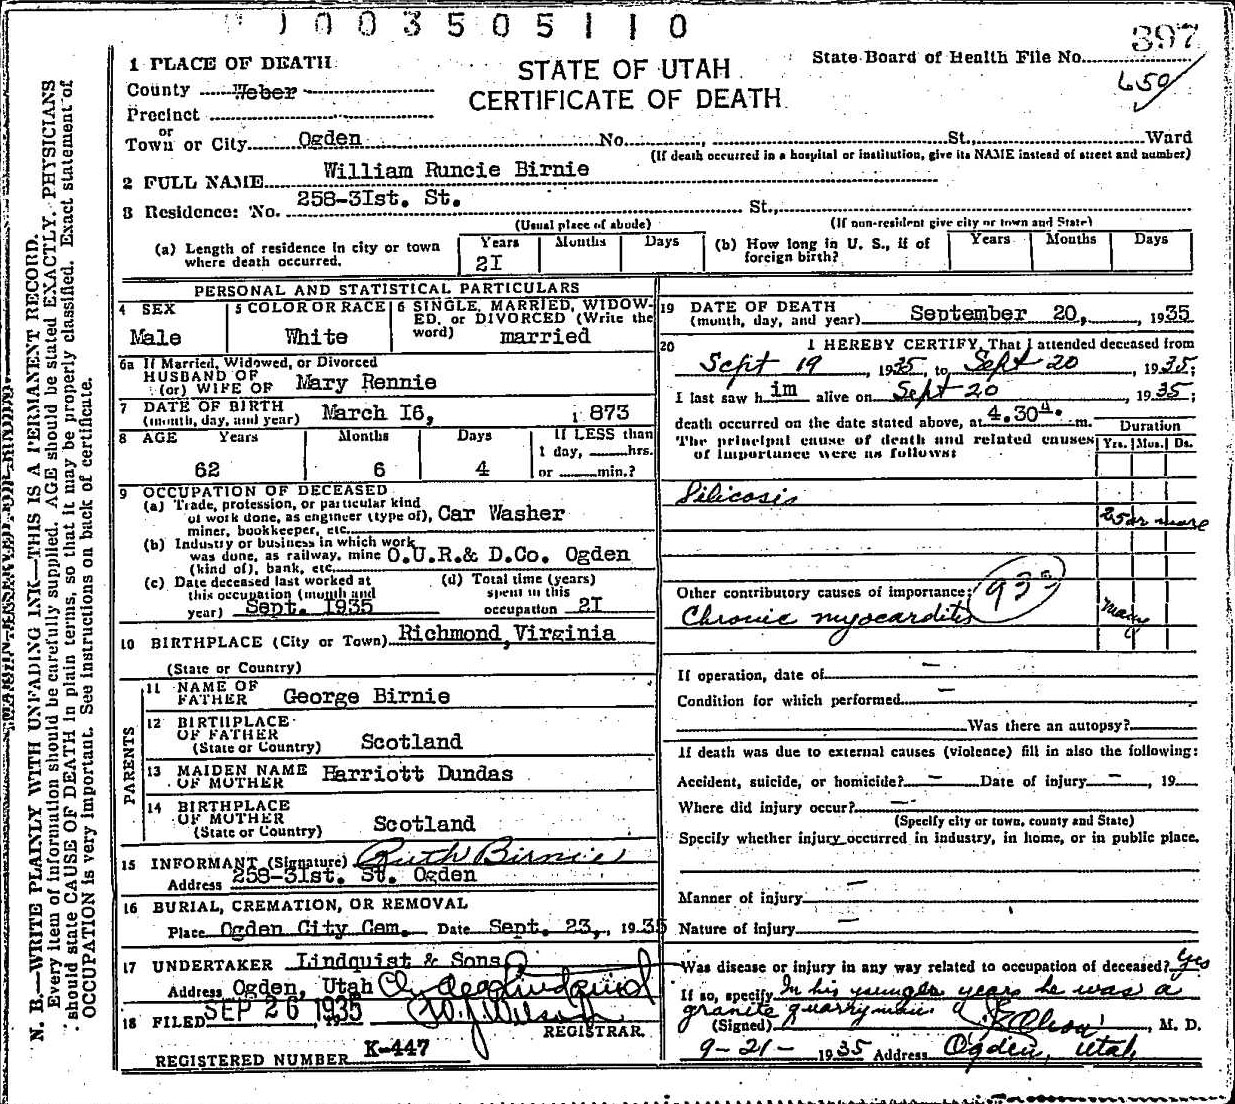 1003505110
397
State Board of Health File No.
650
1 PLACE OF DEATH
STATE OF UTAH
County Weber
CERTIFICATE OF DEATH
Precinct
or
Town or City Ogden No. , St., Ward
(If death occurred in a hospital or institution, give its NAME instead of street and number)
2 FULL NAME William Runcie Birnie
3 Residence: No. 258-3Ist. St. St.,
(Usual place of abode) (If non-resident give city or town and State)
(a) Length of residence in city or town where death occurred. Years 2I Months Days
(b) How long in U. S., if of foreign birth? Years Months Days
PERSONAL AND STATISTICAL PARTICULARS
4 SEX Male
5 COLOR OR RACE White
6 SINGLE, MARRIED, WIDOWED, or DIVORCED (Write the word) married
6a If Married, Widowed, or Divorced
HUSBAND OF
(or) WIFE OF Mary Rennie
7 DATE OF BIRTH
(month, day, and year) March I6, 1873
8 AGE Years Months Days If LESS than
1 day, hrs.
62 6 4 or min.?
9 OCCUPATION OF DECEASED
(a) Trade, profession, or particular kind
of work done, as engineer (type of), Car Washer
miner, bookkeeper, etc.
(b) Industry or business in which work
was done, as railway, mine O.U.R.& D.Co. Ogden
(kind of), bank, etc.
(c) Date deceased last worked at
this occupation (month and
year) Sept. 1935
(d) Total time (years)
spent in this
occupation 2I
10 BIRTHPLACE (City or Town) Richmond, Virginia
(State or Country)
PARENTS
11 NAME OF
FATHER George Birnie
12 BIRTHPLACE
OF FATHER
(State or Country) Scotland
13 MAIDEN NAME
OF MOTHER Harriott Dundas
14 BIRTHPLACE
OF MOTHER
(State or Country) Scotland
15 INFORMANT (Signature) Ruth Birnie
Address 258-3Ist. St. Ogden
16 BURIAL, CREMATION, OR REMOVAL
Place Ogden City Cem. Date Sept. 23, , 1935
17 UNDERTAKER Lindquist & Sons
Address Ogden, Utah
18 FILED SEP 26 1935 W. J. Wilson
REGISTRAR.
REGISTERED NUMBER K-447
19 DATE OF DEATH
(month, day, and year) September 20, , 1935
20 I HEREBY CERTIFY, That I attended deceased from
Sept 19 , 1935, to Sept 20 , 1935;
I last saw h im alive on Sept 20 , 1935;
death occurred on the date stated above, at 4.30 m.
The principal cause of death and related causes
of importance were as follows:
Duration
Yrs. Mos. Ds.
Silicosis
25 or more
Other contributory causes of importance:
93
Chronic myocarditis many
If operation, date of
Condition for which performed
Was there an autopsy?
If death was due to external causes (violence) fill in also the following:
Accident, suicide, or homicide? Date of injury , 19
Where did injury occur?
(Specify city or town, county and State)
Specify whether injury occurred in industry, in home, or in public place.
Manner of injury
Nature of injury
Was disease or injury in any way related to occupation of deceased? Yes
If so, specify In his younger years he was a
granite quarryman.
(Signed) Olson , M. D.
9-21- 1935 Address Ogden, Utah
N. B.—WRITE PLAINLY WITH UNFADING INK—THIS IS A PERMANENT RECORD.
Every item of information should be carefully supplied. AGE should be stated EXACTLY. PHYSICIANS
should state CAUSE OF DEATH in plain terms, so that it may be properly classified. Exact statement of
OCCUPATION is very important. See instructions on back of certificate.